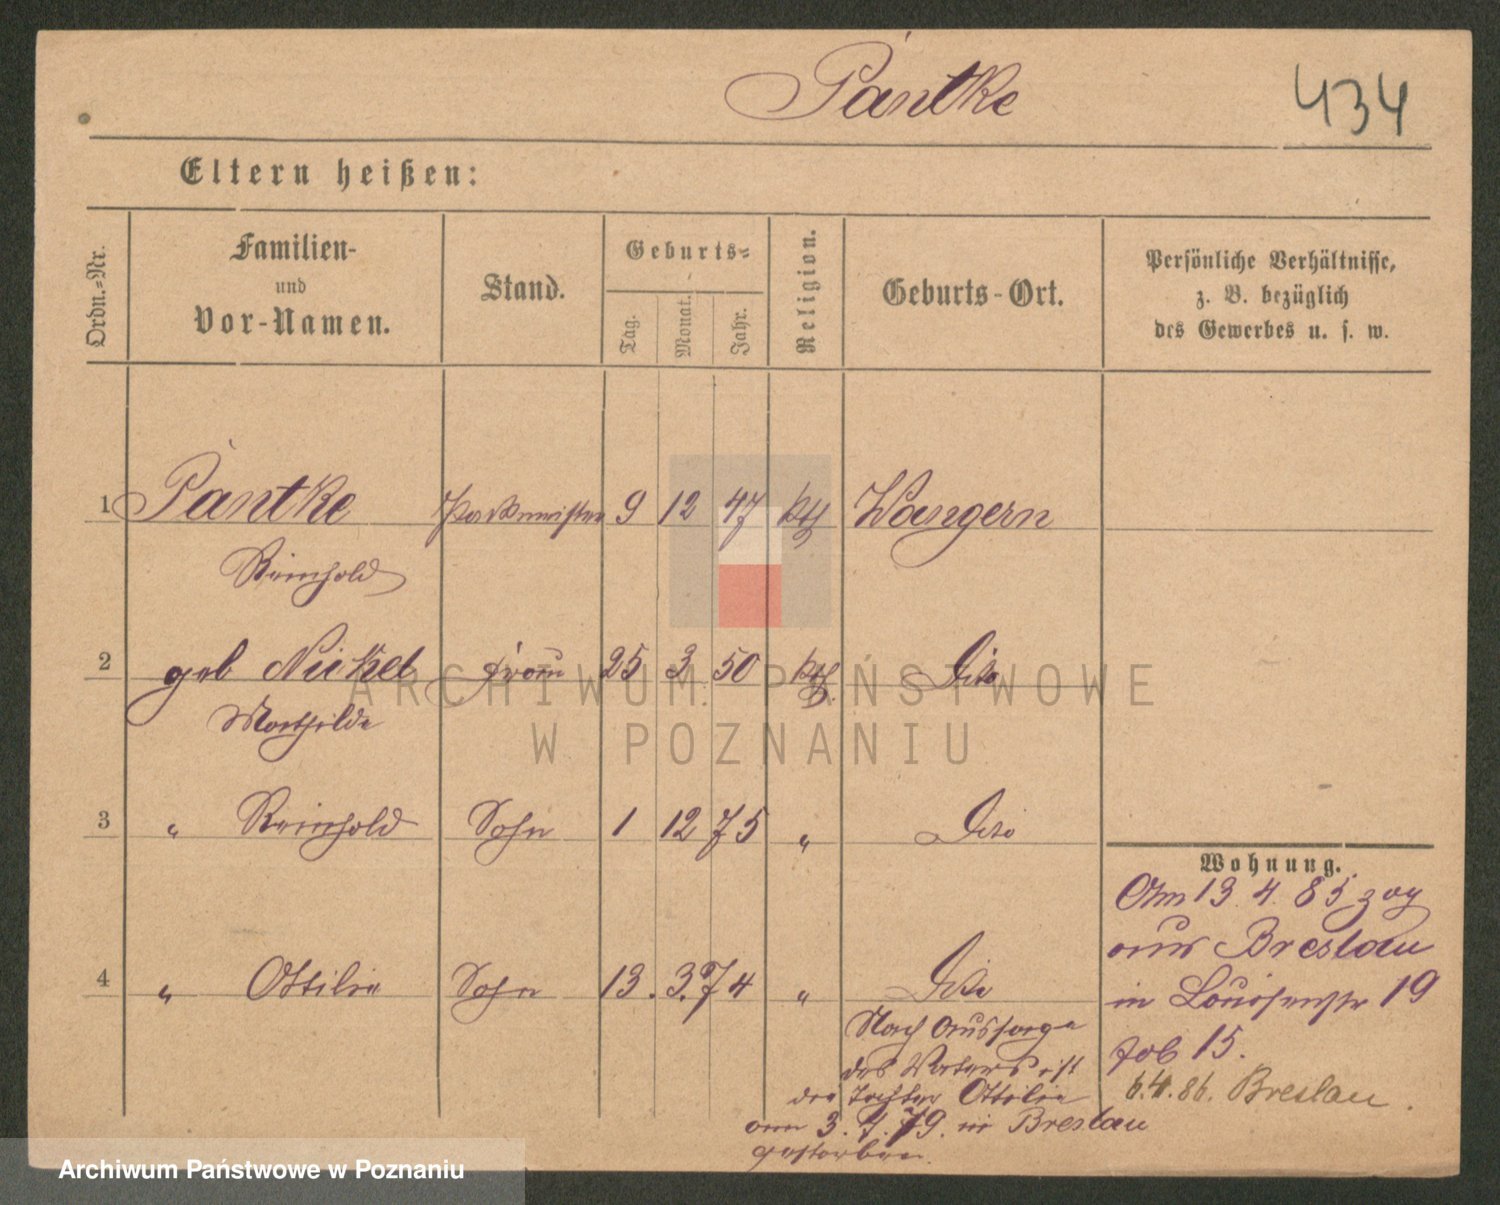 Pantke
434
Eltern heißen:
Ordn.=Nr.
Familien-
und
Vor-Namen.
Stand.
Geburts=
Tag.
Monat.
Jahr.
Religion.
Geburts-Ort.
Persönliche Verhältnisse,
z. B. bezüglich
des Gewerbes u. s. w.
1 Pantke Packmeister 9 12 47 kth Wangern
Reinhold
2 geb Nickel Frau 25 3 50 kth. Dito
Mathilde
3 " Reinhold Sohn 1 12 75 " Dito
4 " Ottilie Sohn 13. 3. 74 " Dito
Nach Aussage
des Vaters ist
die Tochter Ottilie
am 3. 7. 79. in Breslau
gestorben.
Wohnung.
Am 13. 4. 85 zog
aus Breslau
in Louisenstr 19
15.
6.4.86. Breslau.
ARCHIWUM PAŃSTWOWE
W POZNANIU
Archiwum Państwowe w Poznaniu